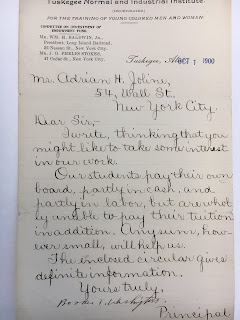 Tuskegee Normal and Industrial Institute
(INCORPORATED)
FOR THE TRAINING OF YOUNG COLORED MEN AND WOMEN
COMMITTEE ON INVESTMENT OF
ENDOWMENT FUND.
Mr. WM. H. BALDWIN, Jr.
President, Long Island Railroad,
Nassau St., New York City.
Mr. J. G. PHELPS STOKES,
47 Cedar St., New York City.
Tuskegee, Ala., OCT 1 1900
Mr. Adrian H. Joline,
54, Wall St.
New York City.
Dear Sir,-
I write, thinking that you
might like to take some interest
in our work.
Our students pay their own
board, partly in cash, and
partly in labor, but are whol-
ly unable to pay their tuition
in addition. Any sum, how-
ever small, will help us.
The enclosed circular gives
definite information.
Yours truly,
Booker T. Washington
Principal